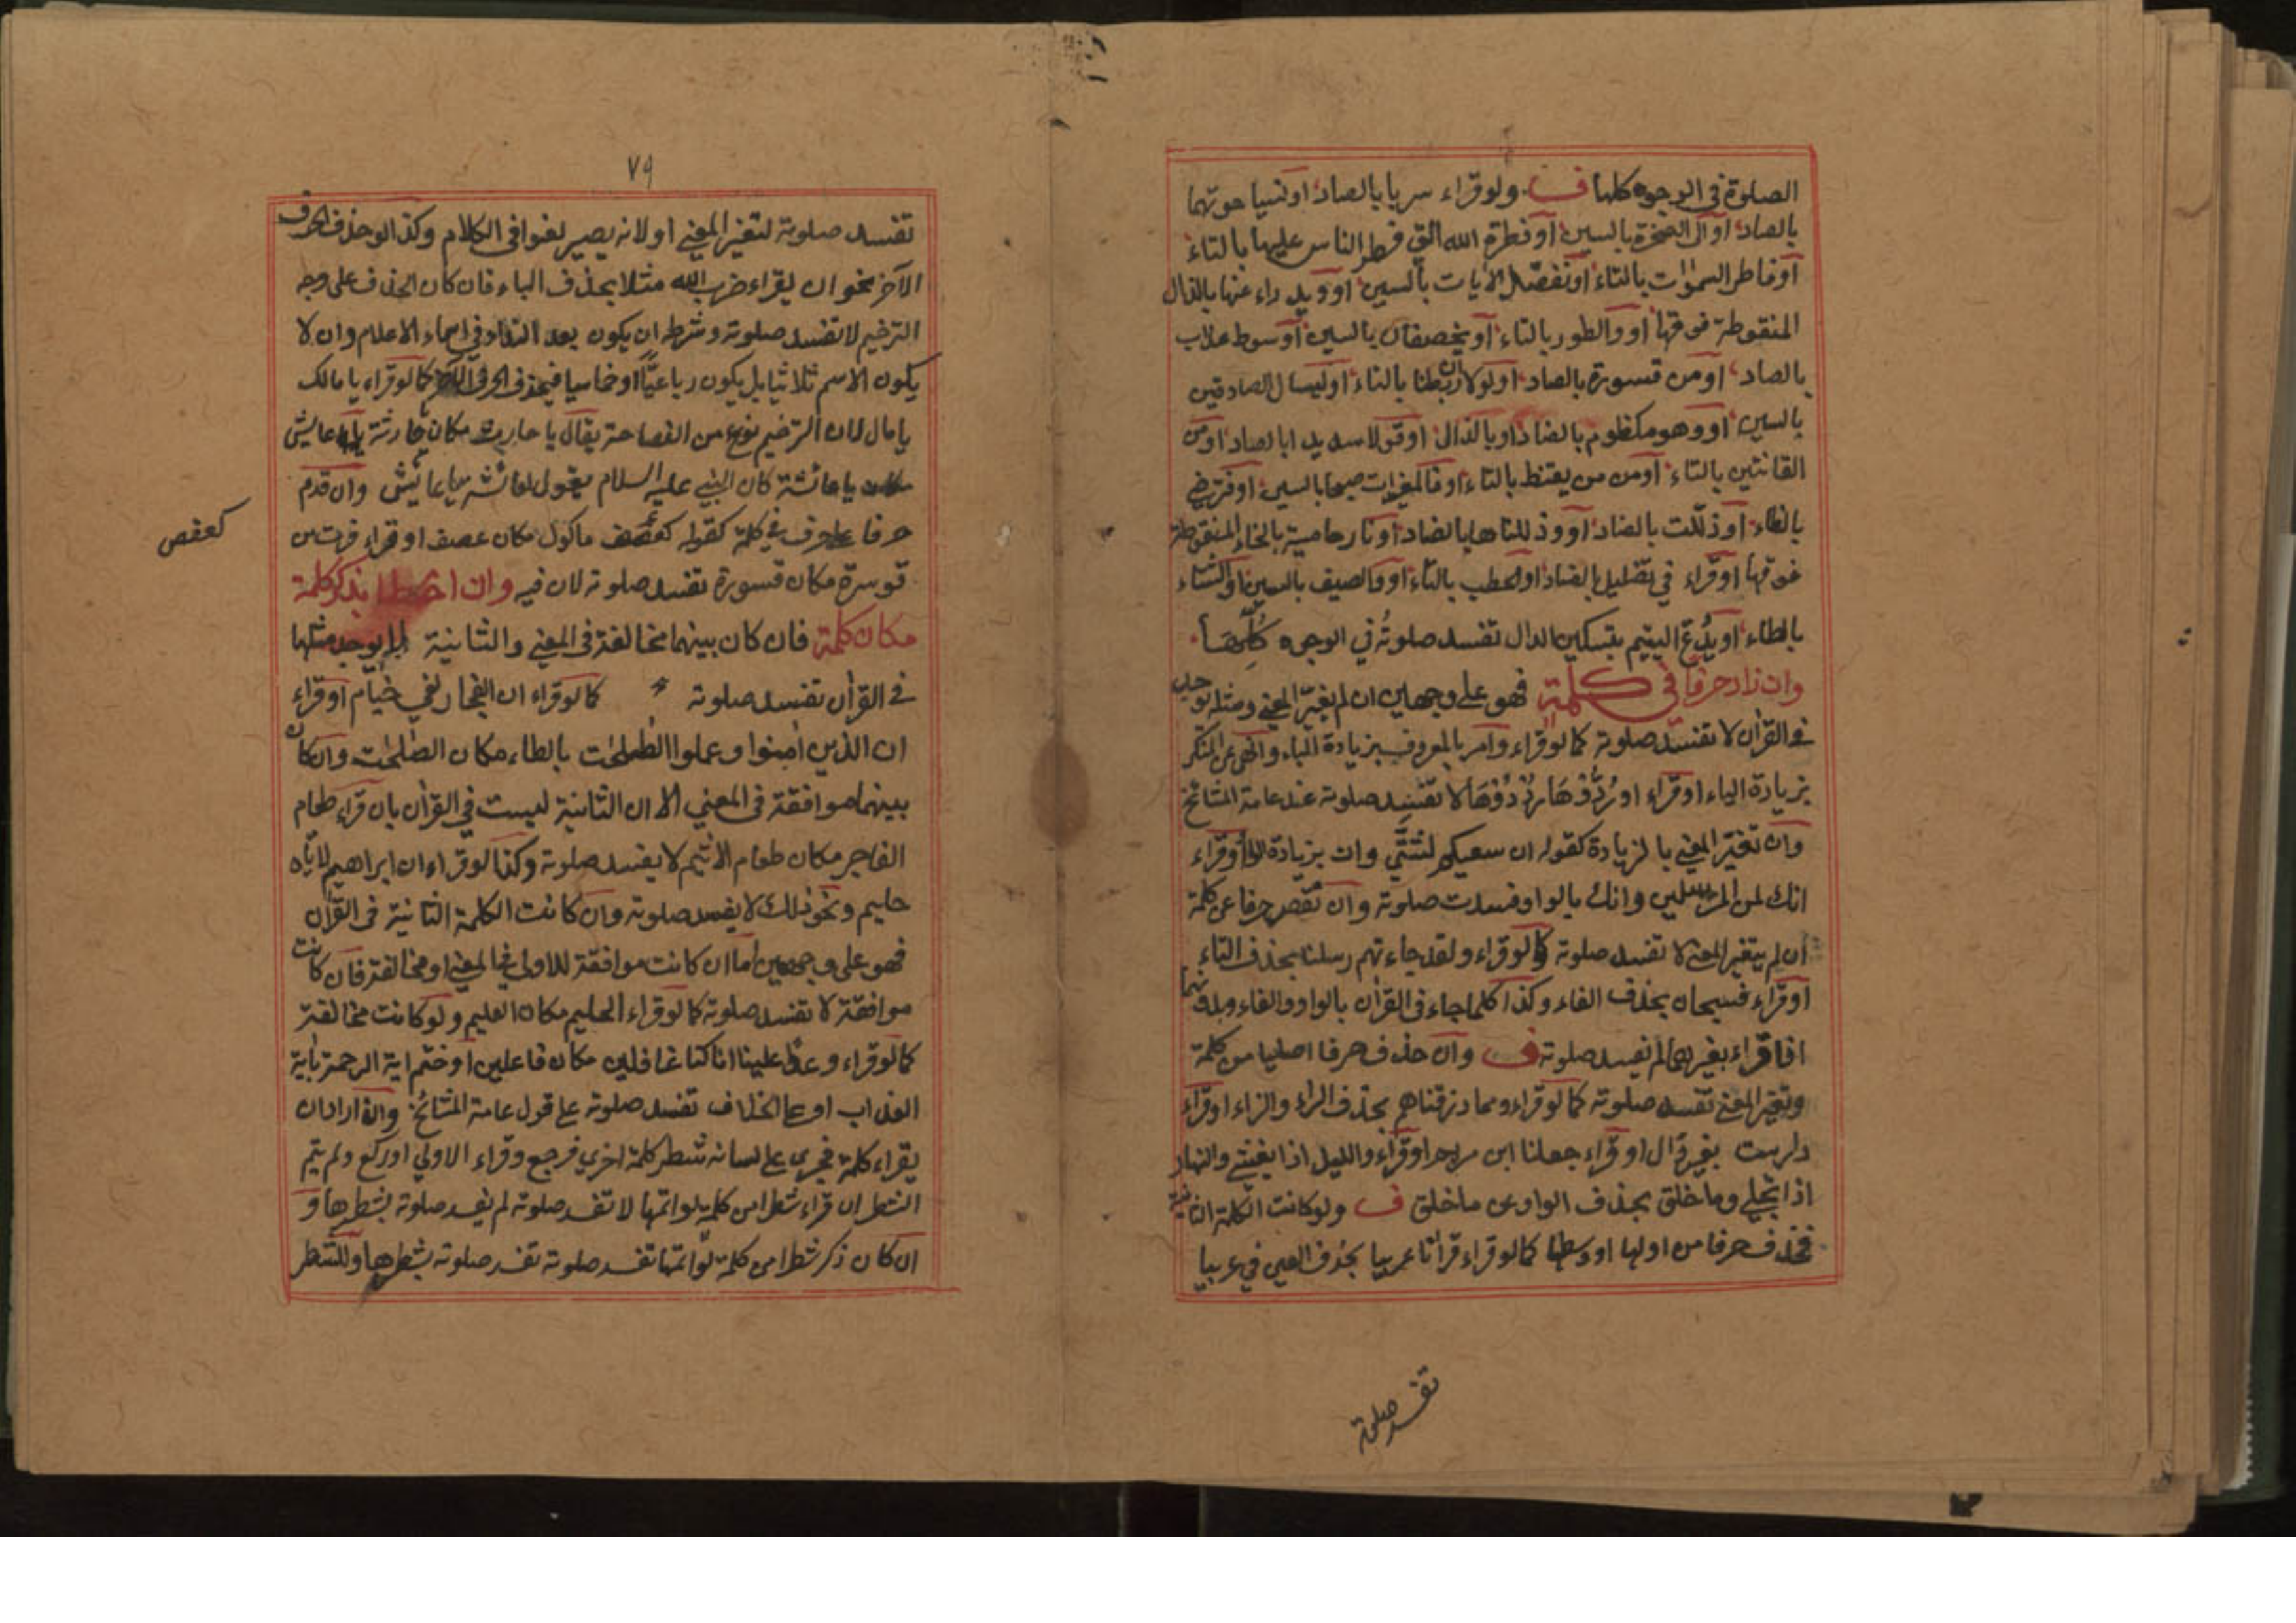 الصلوة في الوجوه كلها ف ولو قراء سربا بالصاد او نسيا حوتهما
بالصاد او الى الصخرة بالسين او فطرة الله التي فطر الناس عليها بالتاء
او فاطر السموات بالتاء او نفصل الايات بالسين او ويد راء عنها بالذال
المنقوطة فوقها او والطور بالتاء او يخصفان بالسين او سوط عذاب
بالصاد او من قسورة بالصاد او لولا ان ربطنا بالتاء او ليسال الصادقين
بالسين او وهو مكظوم بالضاد او بالذال او قولا سديدا بالصاد او من
القانتين بالتاء او من من يقنط بالتاء او فالمغيرات صبحا بالسين او فترضى
بالظاء او ذللت بالضاد او وذللناها بالضاد او نار حامية بالخاء المنقوطة
فوقها او قراء في تضليل بالضاد او لحطب بالتاء او والصيف بالسين او الشتاء
بالطاء او يدع اليتيم بتسكين الدال تفسد صلوته في الوجوه كلها
وان زاد حرفا في كلمة فهو على وجهين ان لم يغير المعنى ومثله يوجد
في القرآن لا تفسد صلوته كما لو قراء وامر بالمعروف بزيادة الباء وانهى عن المنكر
بزيادة الياء او قراء او ردوها ردوها لا تفسد صلوته عند عامة المشائخ
وان تغير المعنى بالزيادة كقوله ان سعيكم لشتى وان بزيادة الواو او قراء
انك لمن المرسلين وانك بالواو فسدت صلوته وان نقص حرفا عن كلمة
ان لم يتغير المعنى لا تفسد صلوته كما لو قراء ولقد جاءتهم رسلنا بحذف التاء
او قراء فسبحان بحذف الفاء وكذا كلما جاء في القرآن بالواو والفاء وبدونهما
اذا قراء بغيرهما لم تفسد صلوته ف وان حذف حرفا اصليا من كلمة
وتغير المعنى تفسد صلوته كما لو قراء ومما رزقناهم بحذف الراء والزاء او قراء
دارست بغير دال او قراء جعلنا ابن مريم او قراء والليل اذا يغشى والنهار
اذا تجلى وما خلق بحذف الواو عن ما خلق ف ولو كانت الكلمة الثانية
فحذف حرفا من اولها او وسطها كما لو قراء قرآنا عربيا بحذف العين في عربيا
تفسد صلوته
٧٩
تفسد صلوته لتغير المعنى او لانه يصير لغوا في الكلام وكذا لو حذف الحرف
الآخر نحو ان يقراء ضرب الله مثلا بحذف الباء فان كان الحذف على وجه
الترخيم لا تفسد صلوته وشرطه ان يكون بعد النداء في اسماء الاعلام وان لا
يكون الاسم ثلاثيا بل يكون رباعيا او خماسيا فيحذف الحرف الآخر كما لو قراء يا مالك
يا مال لان الترخيم نوع من الفصاحة يقال يا حارث مكان حارثة يا عايش
مكان يا عائشة كان النبي عليه السلام يقول لعائشة يا عائش وان قدم
حرفا على حرف في كلمة كقوله كعفص ماكول مكان عصف او قراء فرت من
قوسرة مكان قسورة تفسد صلوته لان فيه وان اخطا بذكر كلمة
مكان كلمة فان كان بينهما مخالفة في المعنى والثانية لم يوجد مثلها
في القرآن تفسد صلوته كما لو قراء ان الفجار لفي خيام او قراء
ان الذين آمنوا وعملوا الطلحت بالطاء مكان الصلحت وان كان
بينهما موافقة في المعنى الا ان الثانية ليست في القرآن بان قراء طعام
الفاجر مكان طعام الاثيم لا يفسد صلوته وكذا لو قراء ان ابراهيم لاياه
حليم ونحو ذلك لا يفسد صلوته وان كانت الكلمة الثانية في القرآن
فهو على وجهين اما ان كانت موافقة للاولى في المعنى او مخالفة فان كانت
موافقة لا تفسد صلوته كما لو قراء الحليم مكان العليم ولو كانت مخالفة
كما لو قراء وعدا علينا انا كنا غافلين مكان فاعلين او ختم اية الرحمة بآية
العذاب او على الخلاف تفسد صلوته على قول عامة المشائخ واذا اراد ان
يقراء كلمة فجرى على لسانه شطر كلمة اخرى فرجع وقراء الاولى او ركع ولم يتم
الشطر ان قراء شطرا من كلمة لو اتمها لا تفسد صلوته لم يفسد صلوته بشطرها و
ان كان ذكر شطرا من كلمة لو اتمها تفسد صلوته تفسد صلوته بشطرها وللشطر
كعفص